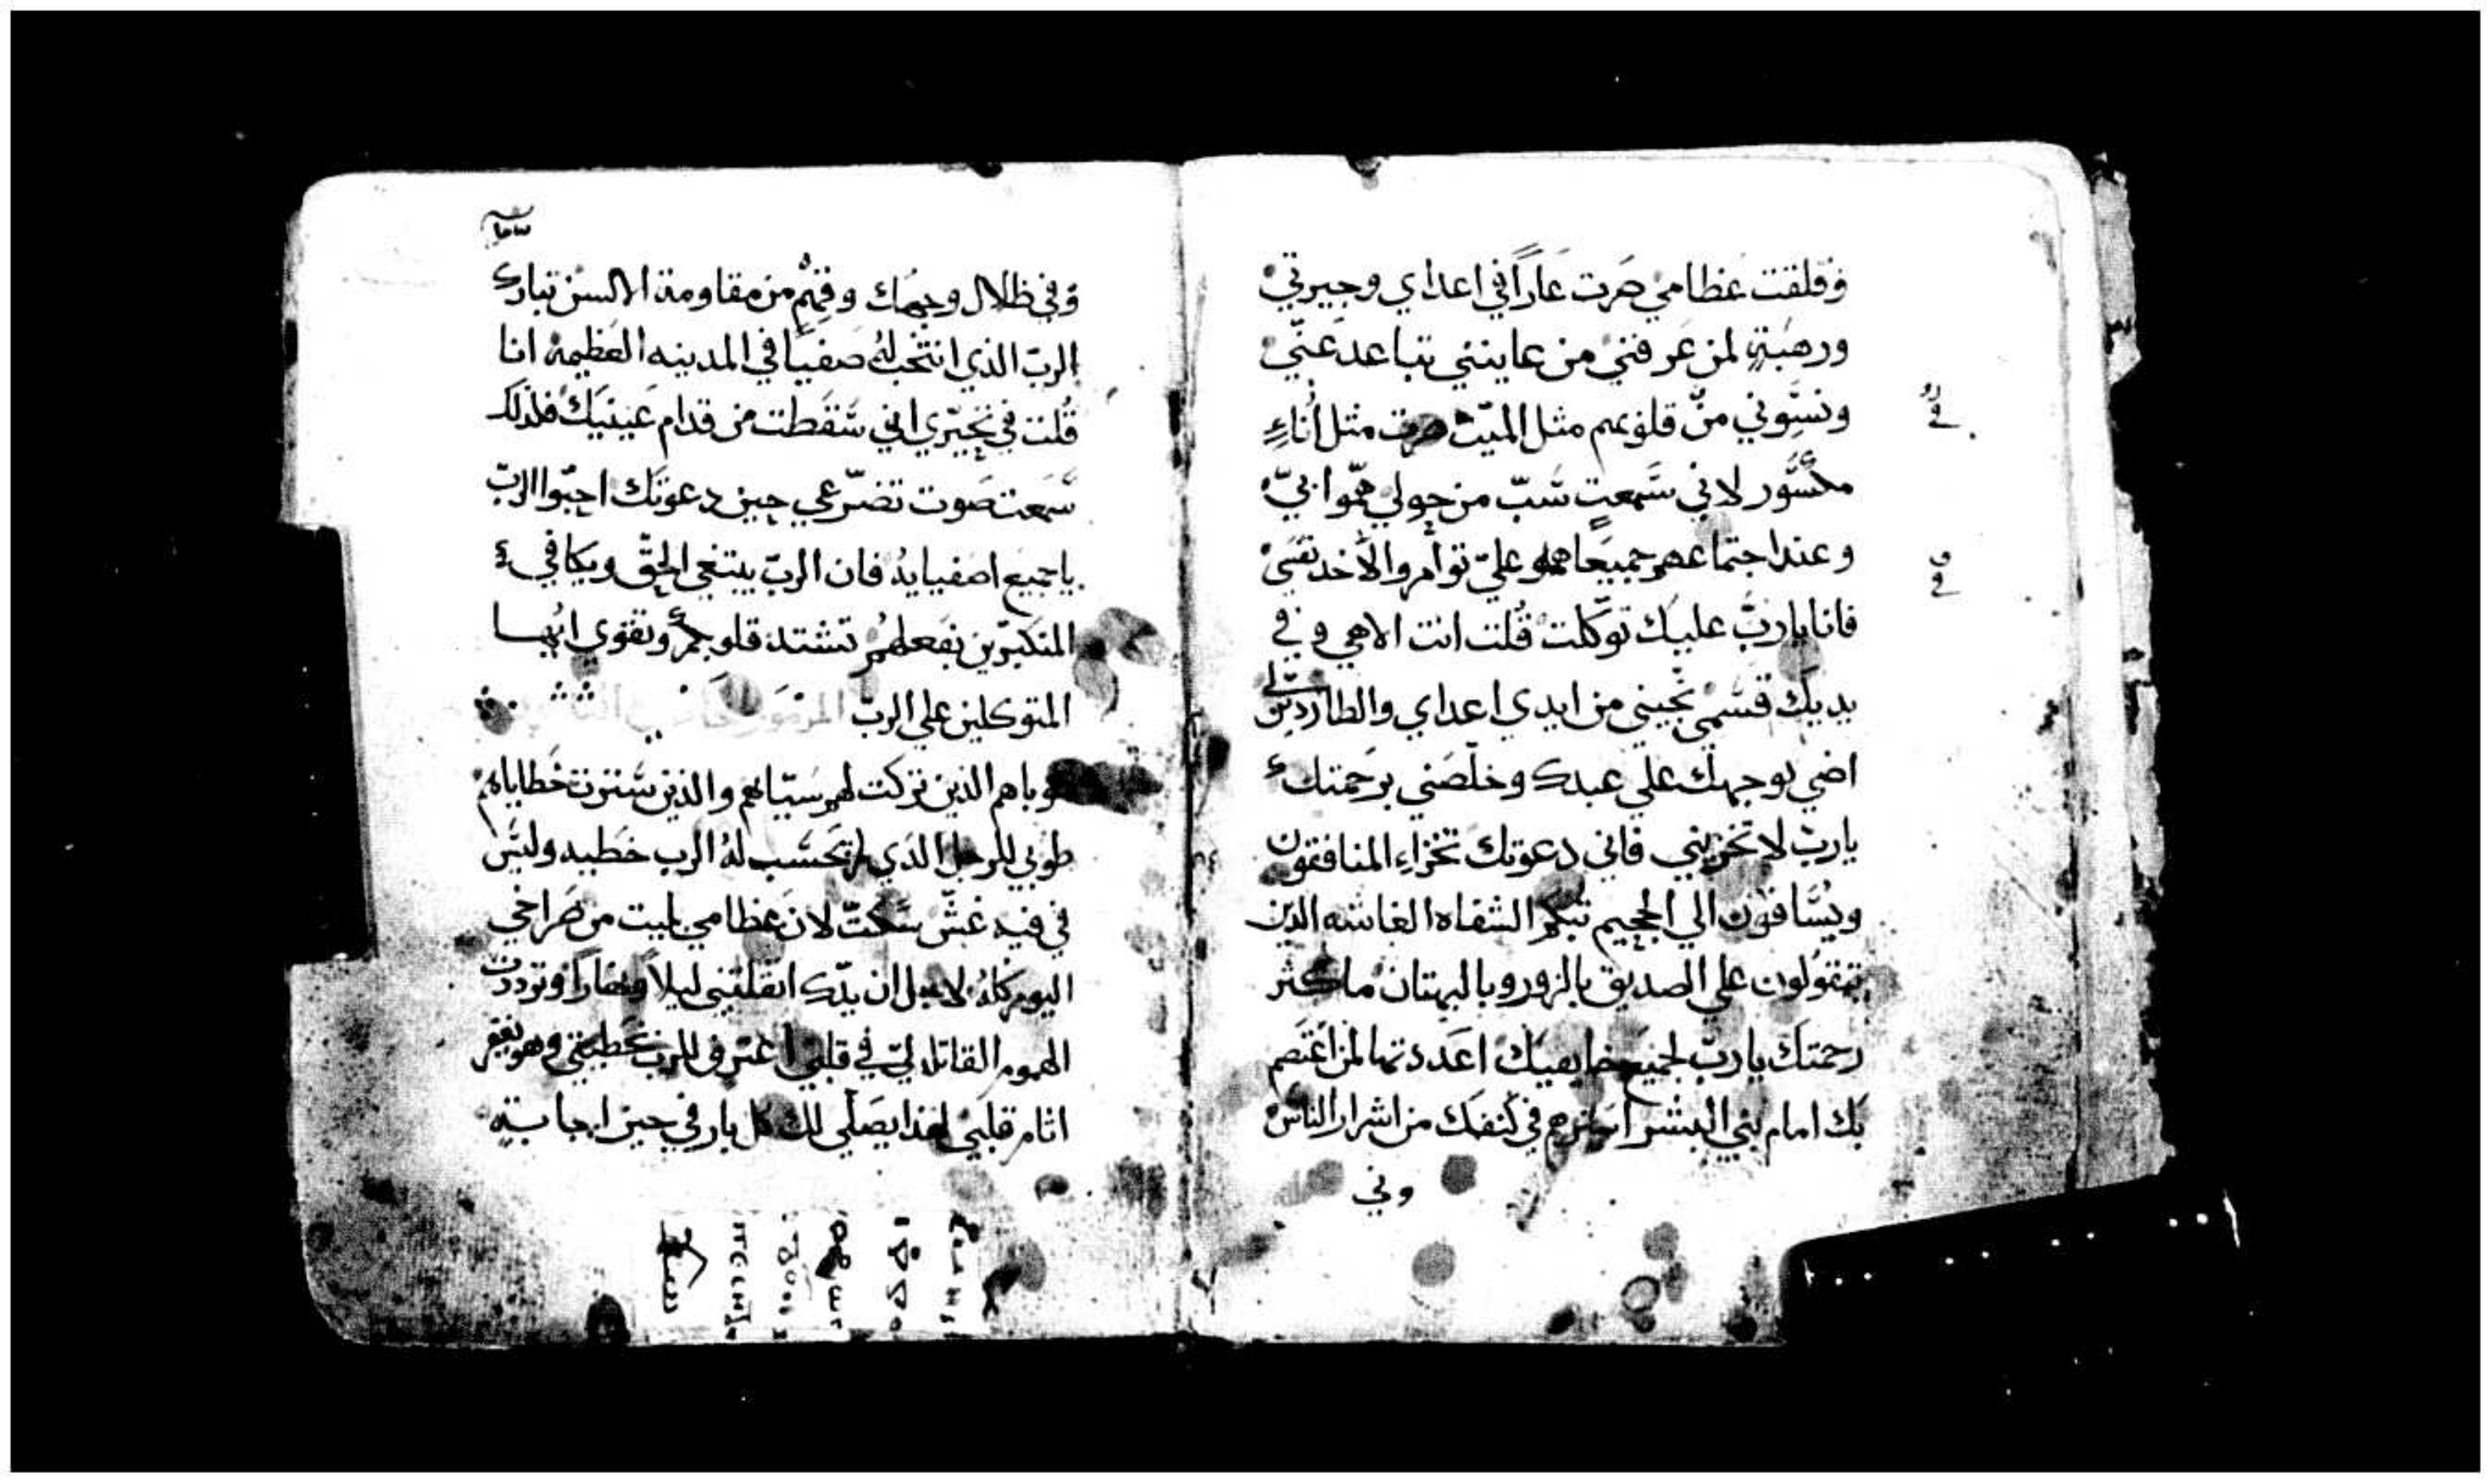 وقلقت عظامي صرت عاراً في اعداي وجيرتي
ورهبة لمن عرفني من عاينني تباعد عنّي
ونسّوني من قلوبهم مثل الميّت صرت مثل أناءٍ
مكسّور لاني سّمعت سّبّ من حولي همّوا بيّ
وعند اجتماعهم جميعًا علىّ توأمروا لأخد نفسّي
فانا يارب عليك توكّلت قُلت انت الاهي وفي
يديك قسّمي نجّيني من ايدي اعداي والطاردين لي
اضي بوجهك علي عبدك وخلّصني برحمتك
ياربّ لا تخزيني فاني دعوتك تخزاء المنافقون
ويسّاقون الي الجحيم تبكم الشفاه الغاشه الذين
يتقوّلون علي الصديق بالزور وبالبهتان ما كثر
رحمتك ياربّ لجميع خايفيك اعددتها لمن اعتصم
بك امام بني البشر في كنفك من اشرار الناس
وفي
وفي ظلال وجهك وقِهُم من مقاومة الالسن تبارك
الربّ الذي انتخب لهُ صفيّاً في المدينه العظيمة انا
قُلت في تحيّري اني سّقطت من قدام عينيك فلذلك
سّمعت صوت تضرّعي حين دعوتك احبّوا الربّ
ياجميع اصفيايهُ فان الربّ يبتغي الحقّ ويكافيء
المتكبّرين بفعلهم تشتد قلوبكم وتقوي ايّها
المتوكلين علي الربّ
طوباهم الذين تركت لهم سيّاتهم والذين سّترت خطاياهم
طوبي للرجل الذي لم يحسّب لهُ الرب خطيه وليسّ
في فيه غشّ سّكتّ لان عظامي بليت من صراخي
اليوم كلهُ لاجل ان يدّك اثقلتني ليلاً ونهارًا وتودّدت
الهموم القاتله ليّ في قلبي اعترف للرب بخطيتي وهو يغفر
اثام قلبي لهذا يصلّي لك كل بار في حين اجابته